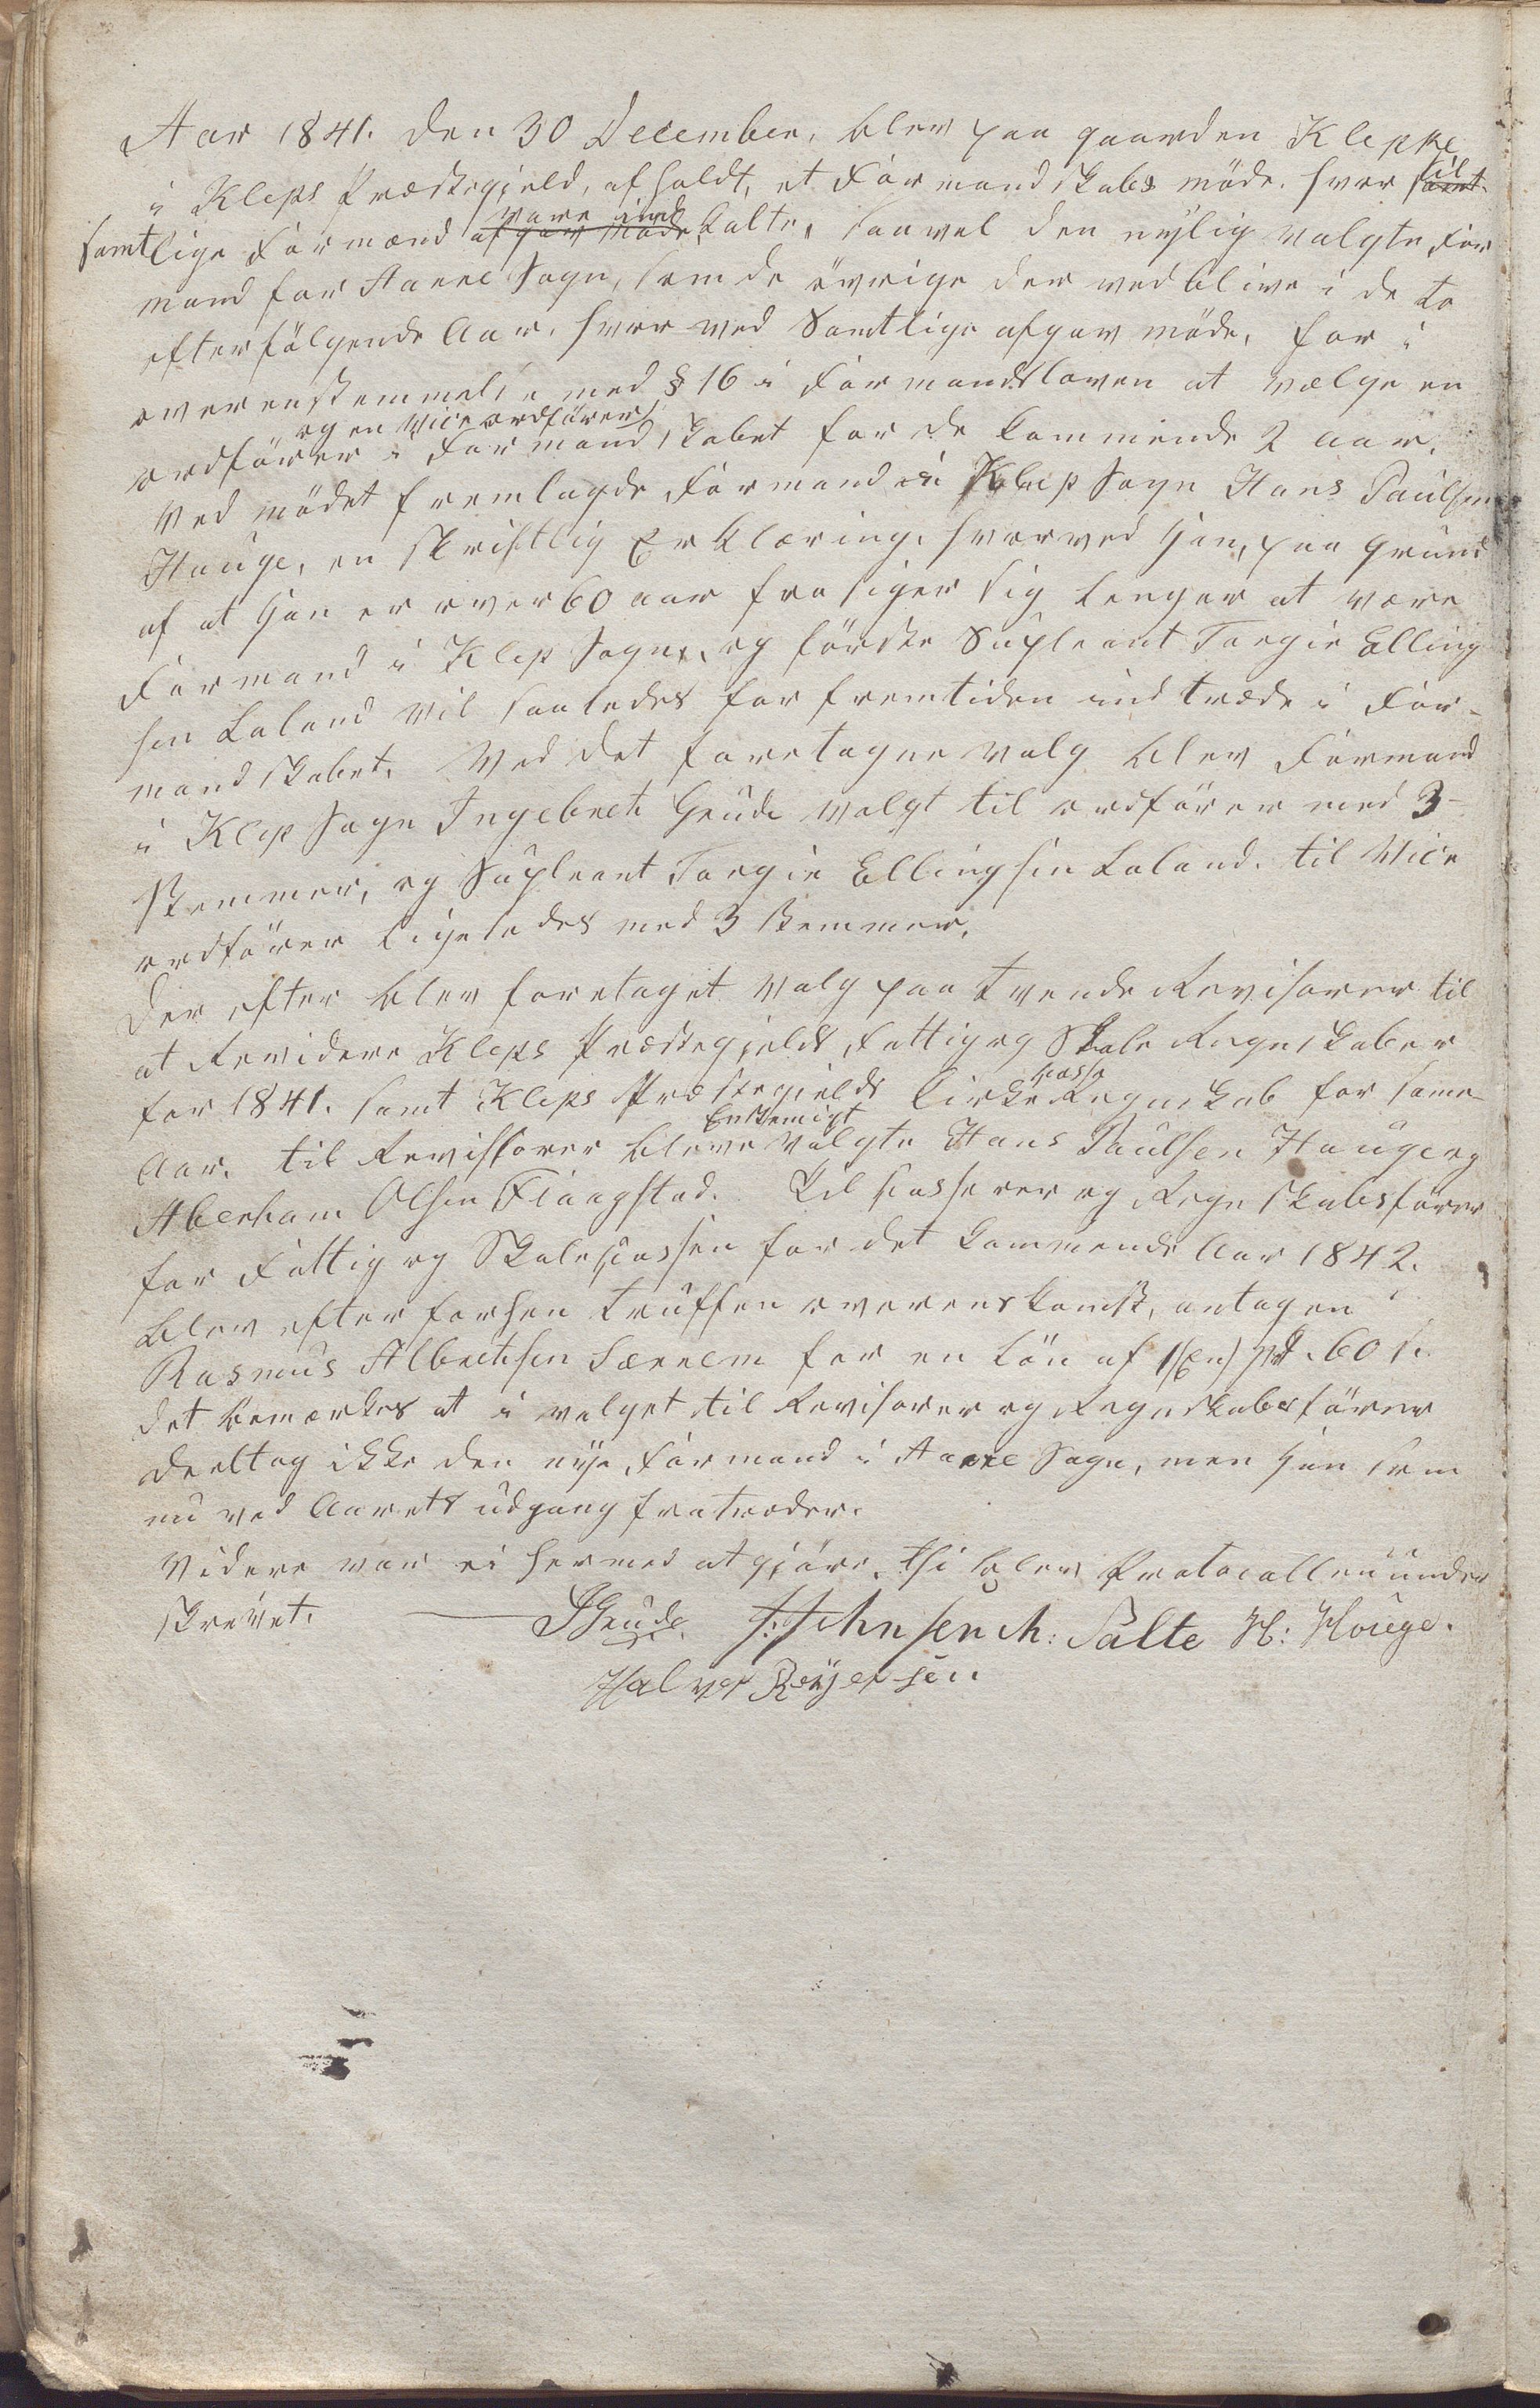 Aar 1841. den 30 December, blev paa gaarden Kleppe
i Kleps Præstegjeld, afholdt, et Formandskabs möde. hvor samt til
samtlige Formænd afgav möde vare ind kalte, saavel den nylig valgte For
mand for Aarre Sogn, som de övrige der vedblive i de to
efterfölgende Aar, hvor ved Samtlige afgav möde, for i
overenstemmelse med § 16 i Formandsloven at vælge en
og en Viceordförer
ordförer i Formandskabet for de kommende 2 aar.
Ved mödet fremlagde Formand i Klep Sogn Hans Paulsen
Hauge, en skriftlig Erklæring, hvorved han, paa Grund
af at han er over 60 aar frasiger sig lenger at være
Formand i Klep Sogn, og förste Supleant Torgie Elling
sen Laland vil saaledes for fremtiden indtræde i For-
mandskabet. Ved det foretagne valg blev Formand
i Klep Sogn Ingebret Gude valgt til ordförer med 3-
Stemmer, og Supleant Torgie Ellingsen Laland. til Vice
ordförer ligeledes med 3 Stemmer.
Der efter blev foretaget valg paa tvende Revisorer til
at Revidere Kleps Præstegjelds Fattig og Skole Regnskaber
for 1841. samt Kleps Præstegjelds Kirke kasse Regnskab for same
Aar. til Revisorer bleve Enstemigt valgte Hans Paulsen Hauge og
Aberham Olsen Flaagstad. Til Casserer og Regnskabsförer
for Fattig og Skole Cassen for det kommende Aar 1842.
blev efter forhen truffen overenskomst, antagen
Rasmus Albretsen Særrem for en Lön af 1/(En) 60 s.
det bemærkes at i valget til Revisorer og Regnskabsförer
deeltog ikke den nye Formand i Aarre Sogn, men han som
nu ved Aarets udgang fratræder.
Videre var ei hermed at gjöre, thi blev Protocollen under
skrevet. IGude. Johnsen M: Salte H: Houge.
Halvor Reyersen